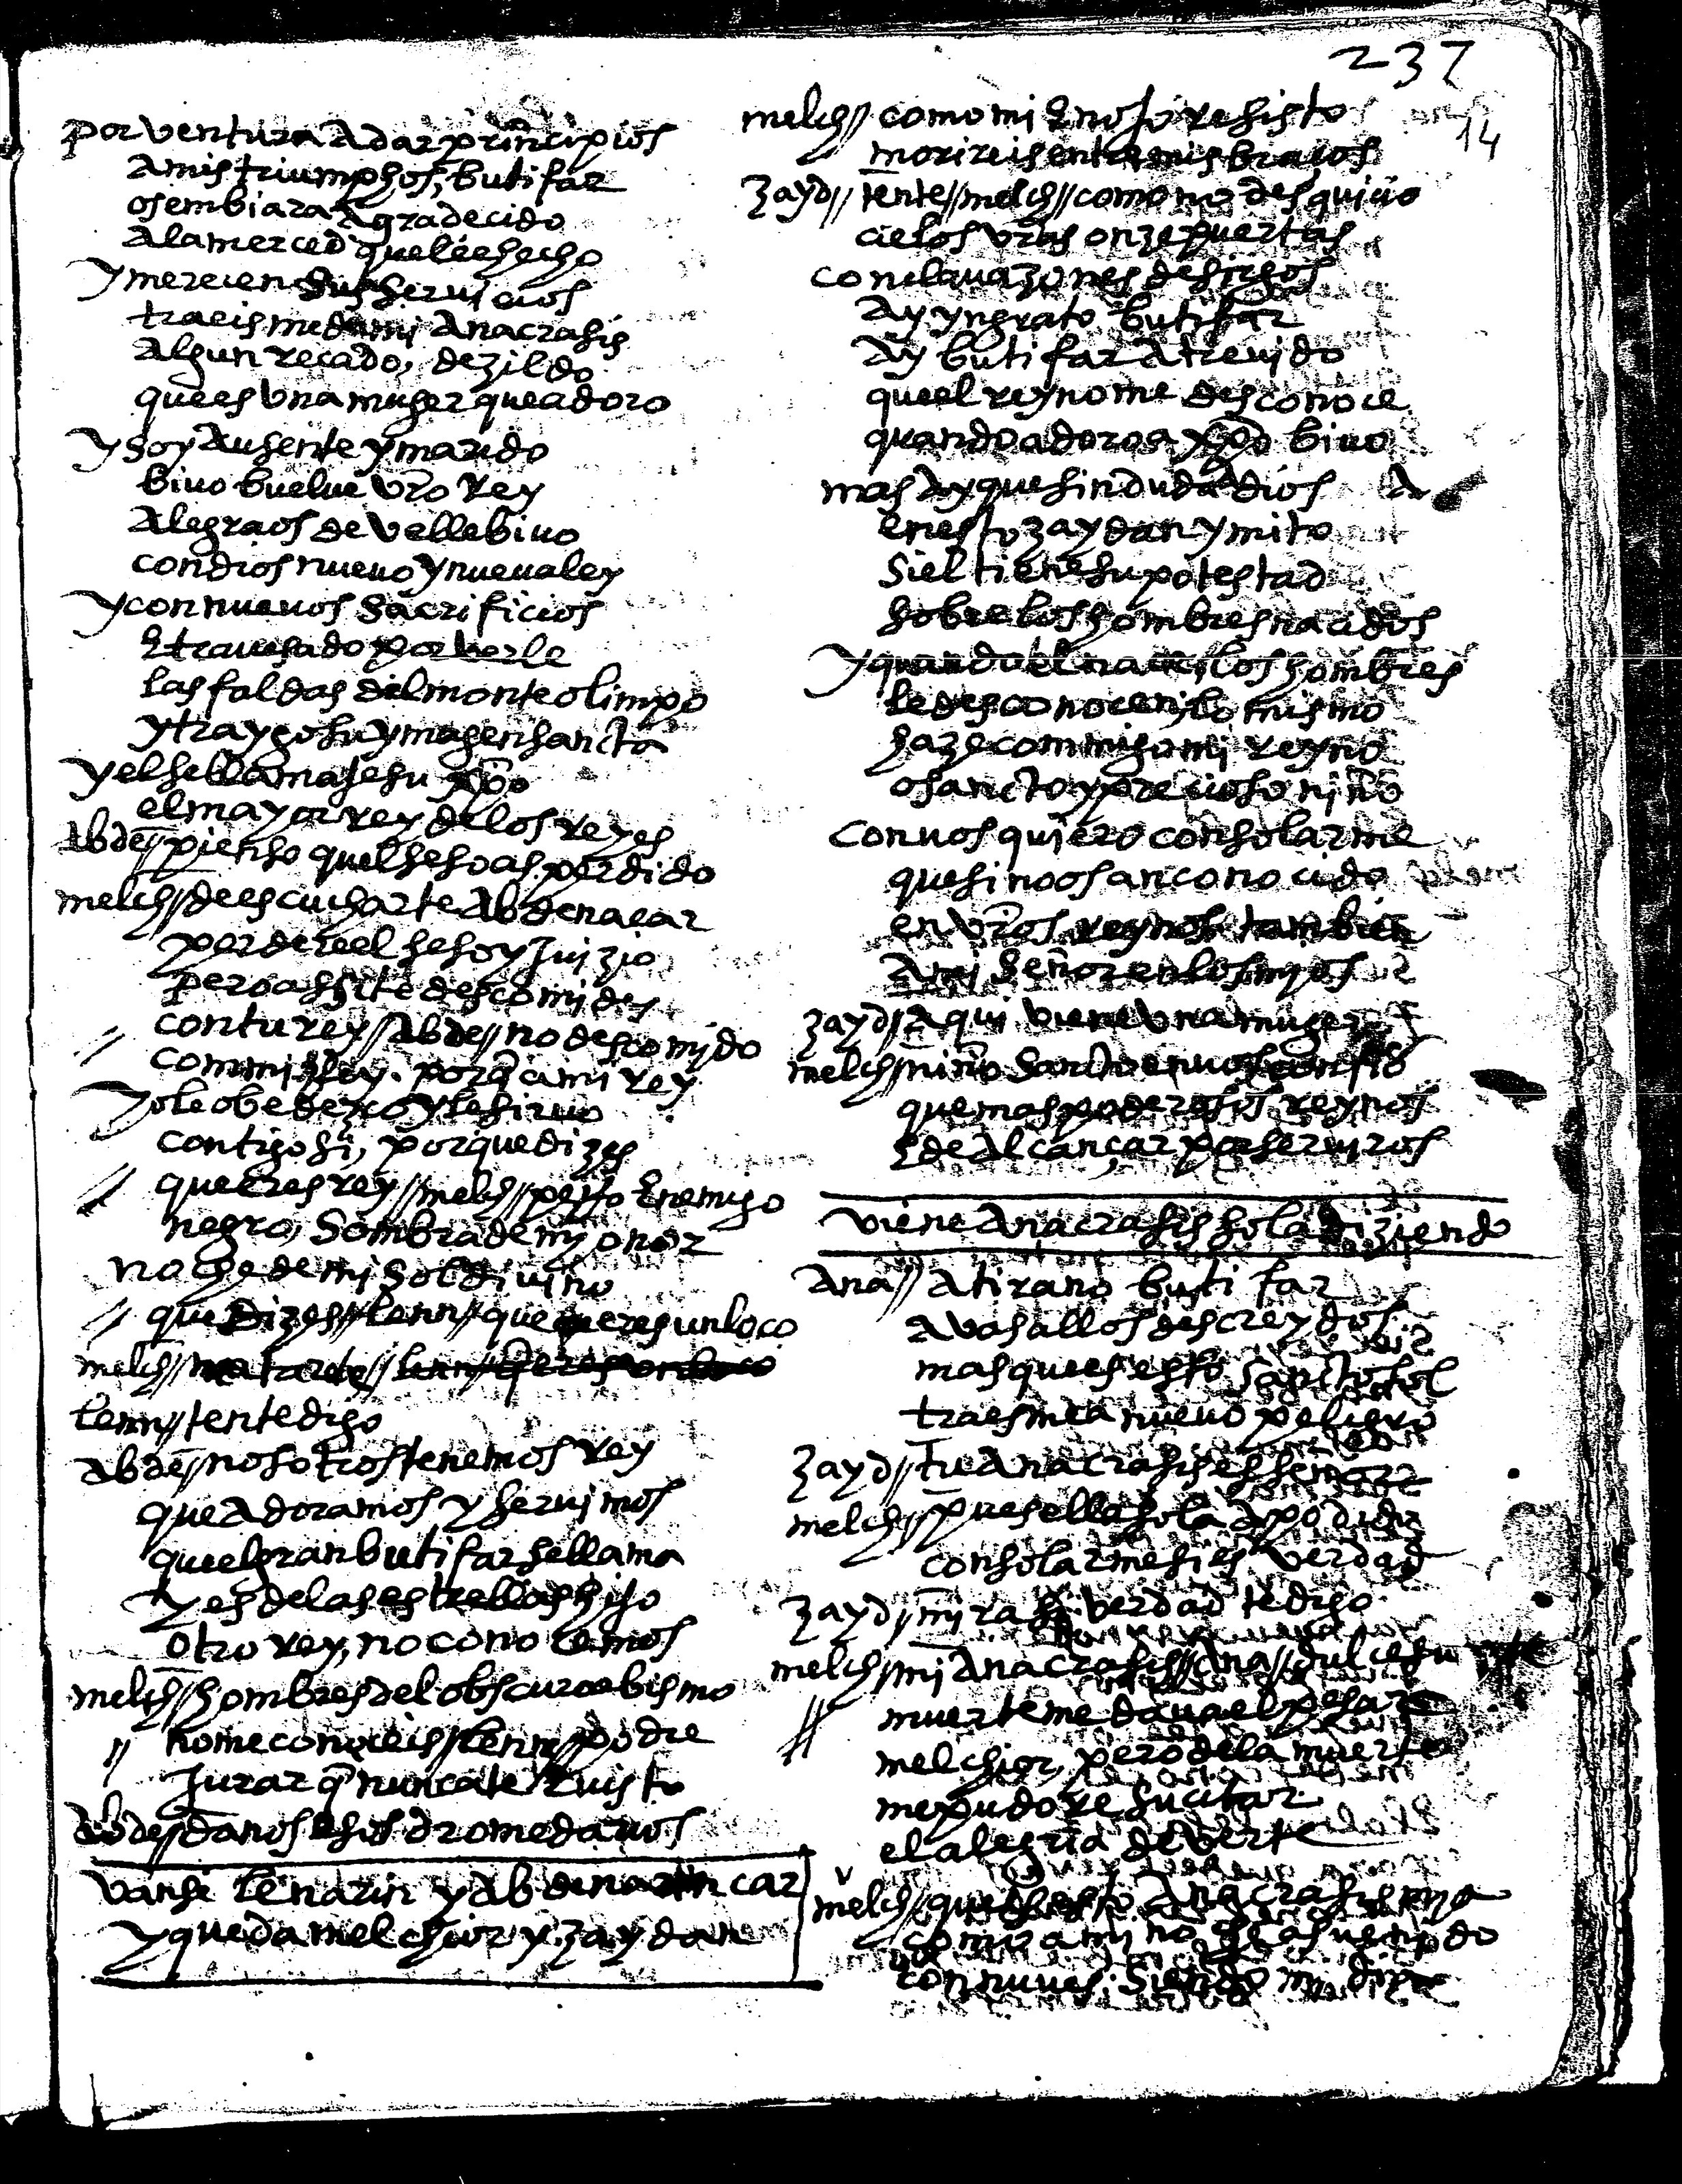 237
14
por ventura a dar principios
a mis triumphos, butifar
os embiara agradecido
a la merced que le e hecho
y merecen sus servicios
traeis me de mi Anacrasis
algun recado, dezildo
que es una muger que adoro
y soy ausente y marido
bivo buelve vro Rey
alegraos de velle bivo
con dios nuevo y nueva ley
y con nuevos sacrificios
e travesado por verle
las faldas del monte olimpo
y traygo su ymagen sancta
y el se llama jesu xpo
el mayor rey de los reyes
Abde// pienso quel seso as perdido
melch// de escucharte Abdenacar
perdere el seso y juizio
pero assi te descomides
// con tu rey // Abde // no descomido
com mi Rey. porq a mi rey
yo le obedezco y le sirvo
contigo si, porque dizes
// que eres rey // melch // perro enemigo
negro, sombra de mi onor
noche de mi sol divino
// que dizes // lenn // que eres un loco
melch// matarete // lenn // q eres un loco
lenn// tente digo
Abde// nosotros tenemos rey
que adoramos y servimos
que el gran butifar se llama
y es de las estrellas hijo
otro rey, no conocemos
melch// hombres del obscuro abismo
// no me conoceis // lenn // podre
jurar q nunca te e visto
Abde// danos esos dromedarios
vanse lenarin y Abdenacar
y queda melchior y zaydan
melch// como mi enojo resisto
morireis entre mis braços
zayd// tente // melch // como no desquicio
cielos vras onze puertas
con clavazones de signos
ay yngrato butifar
ay butifar atrevido
que el rey no me desconoce
quando adoro a xpo bivo
mas ay que sin duda dios
en esto zaydan ymito
si el tiene su potestad
sobre los hombres nacidos
y quando el nace los hombres
le desconocen, lo mismo
haze commigo mi reyno
o sancto y precioso niño
con vos quiero consolarme
que si no os an conocido
en vros reynos tambien
a mi señor en los mios
zayd// aqui viene una muger
melch// niño sancto en vos confio
que mas poderosos reynos
e de alcançar por serviros
viene Anacrasis sola diziendo
Ana// a tirano butifar
a vasallos descreydos
mas que es esto sancto sol
traesme a nuevo peligro
zayd// tu Anacrasis es señor
melch// pues ella sola a podido
consolarme si es verdad
zayd// mira si verdad te digo
melch// mi Anacrasis // Ana // dulce
// muerte me dava el pesar
melchior, pero de la muerte
me pudo resucitar
el alegria de verte
melch// que es esto Anacrasis mia
como a mi no as venido
con nuves siendo mi